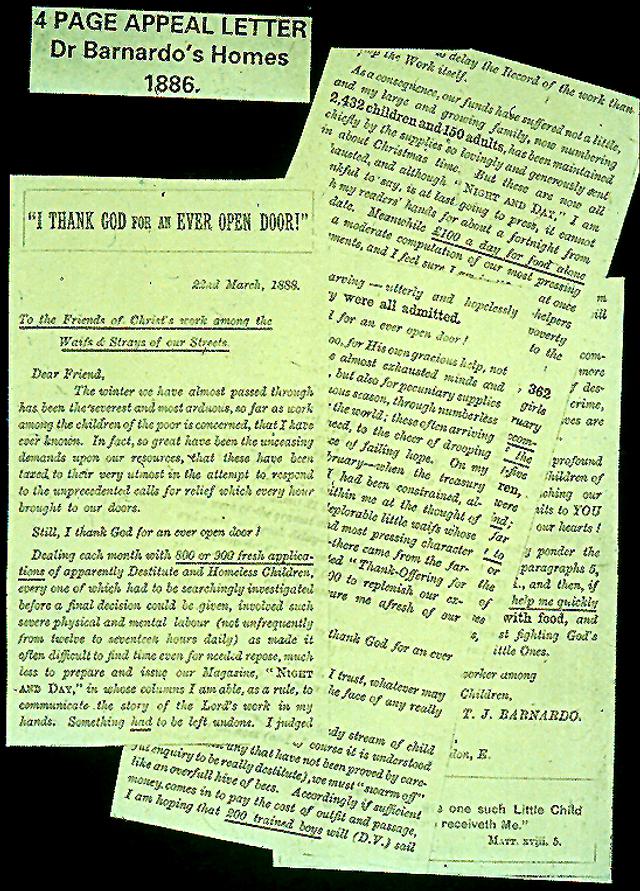 4 PAGE APPEAL LETTER
Dr Barnardo's Homes
1886.
"I THANK GOD FOR AN EVER OPEN DOOR!"
22nd March, 1888.
To the Friends of Christ's work among the
Waifs & Strays of our Streets.
Dear Friend,
The winter we have almost passed through
has been the severest and most arduous, so far as work
among the children of the poor is concerned, that I have
ever known. In fact, so great have been the unceasing
demands upon our resources, that these have been
taxed to their very utmost in the attempt to respond
to the unprecedented calls for relief which every hour
brought to our doors.
Still, I thank God for an ever open door!
Dealing each month with 800 or 900 fresh applica-
tions of apparently Destitute and Homeless Children,
every one of which had to be searchingly investigated
before a final decision could be given, involved such
severe physical and mental labour (not unfrequently
from twelve to seventeen hours daily) as made it
often difficult to find time even for needed repose, much
less to prepare and issue our Magazine, "NIGHT
AND DAY," in whose columns I am able, as a rule, to
communicate the story of the Lord's work in my
hands. Something had to be left undone. I judged
delay the Record of the work than
the Work itself.
As a consequence, our funds have suffered not a little,
and my large and growing family, now numbering
2,432 children and 150 adults, has been maintained
chiefly by the supplies so lovingly and generously sent
in about Christmas time. But these are now all
hausted, and although "NIGHT AND DAY," I am
nkful to say, is at last going to press, it cannot
h my readers' hands for about a fortnight from
date. Meanwhile £100 a day for food alone
a moderate computation of our most pressing
ments, and I feel sure I
arving—utterly and hopelessly
y were all admitted.
I for an ever open door!
oo, for His own gracious help, not
e almost exhausted minds and
, but also for pecuniary supplies
ous season, through numberless
the world; these often arriving
need, to the cheer of drooping
ce of failing hope. On my
bruary—when the treasury
I had been constrained, al-
ithin me at the thought of
eplorable little waifs whose
d most pressing character
there came from the far-
ed "Thank-Offering for
00 to replenish our ex-
ure me afresh of our
thank God for an ever
I trust, whatever may
he face of any really
at once
helpers
poverty
to the
, 362
girls
ruary
com-
the
five
ren,
were
nd;
far
to
or
the
of
com-
more
f des-
crime,
ves are
profound
hildren of
ching our
ails to YOU
our hearts!
y ponder the
paragraphs 5,
., and then, if
help me quickly
with food, and
st fighting God's
ittle Ones.
worker among
Children,
T. J. BARNARDO.
don, E.
dy stream of child
of course it is understood
any that have not been proved by care-
ful enquiry to be really destitute), we must "swarm off"
like an overfull hive of bees. Accordingly if sufficient
money comes in to pay the cost of outfit and passage,
I am hoping that 200 trained boys will (D.V.) sail
one such Little Child
receiveth Me."
MATT. xviii. 5.